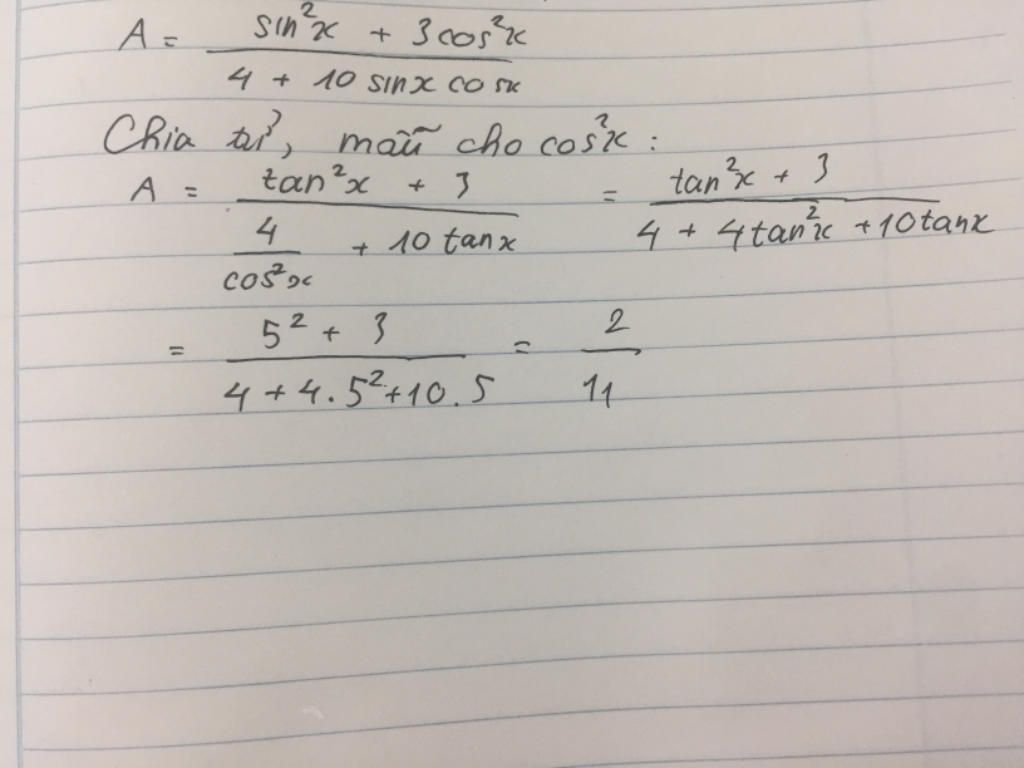 A = \frac{sin²x + 3cos²x}{4 + 10 sinx cosx}
Chia tử, mẫu cho cos²x :
A = \frac{tan²x + 3}{\frac{4}{cos²x} + 10 tanx} = \frac{tan²x + 3}{4 + 4tan²x + 10tanx}
= \frac{5² + 3}{4 + 4.5² + 10.5} = \frac{2}{11}